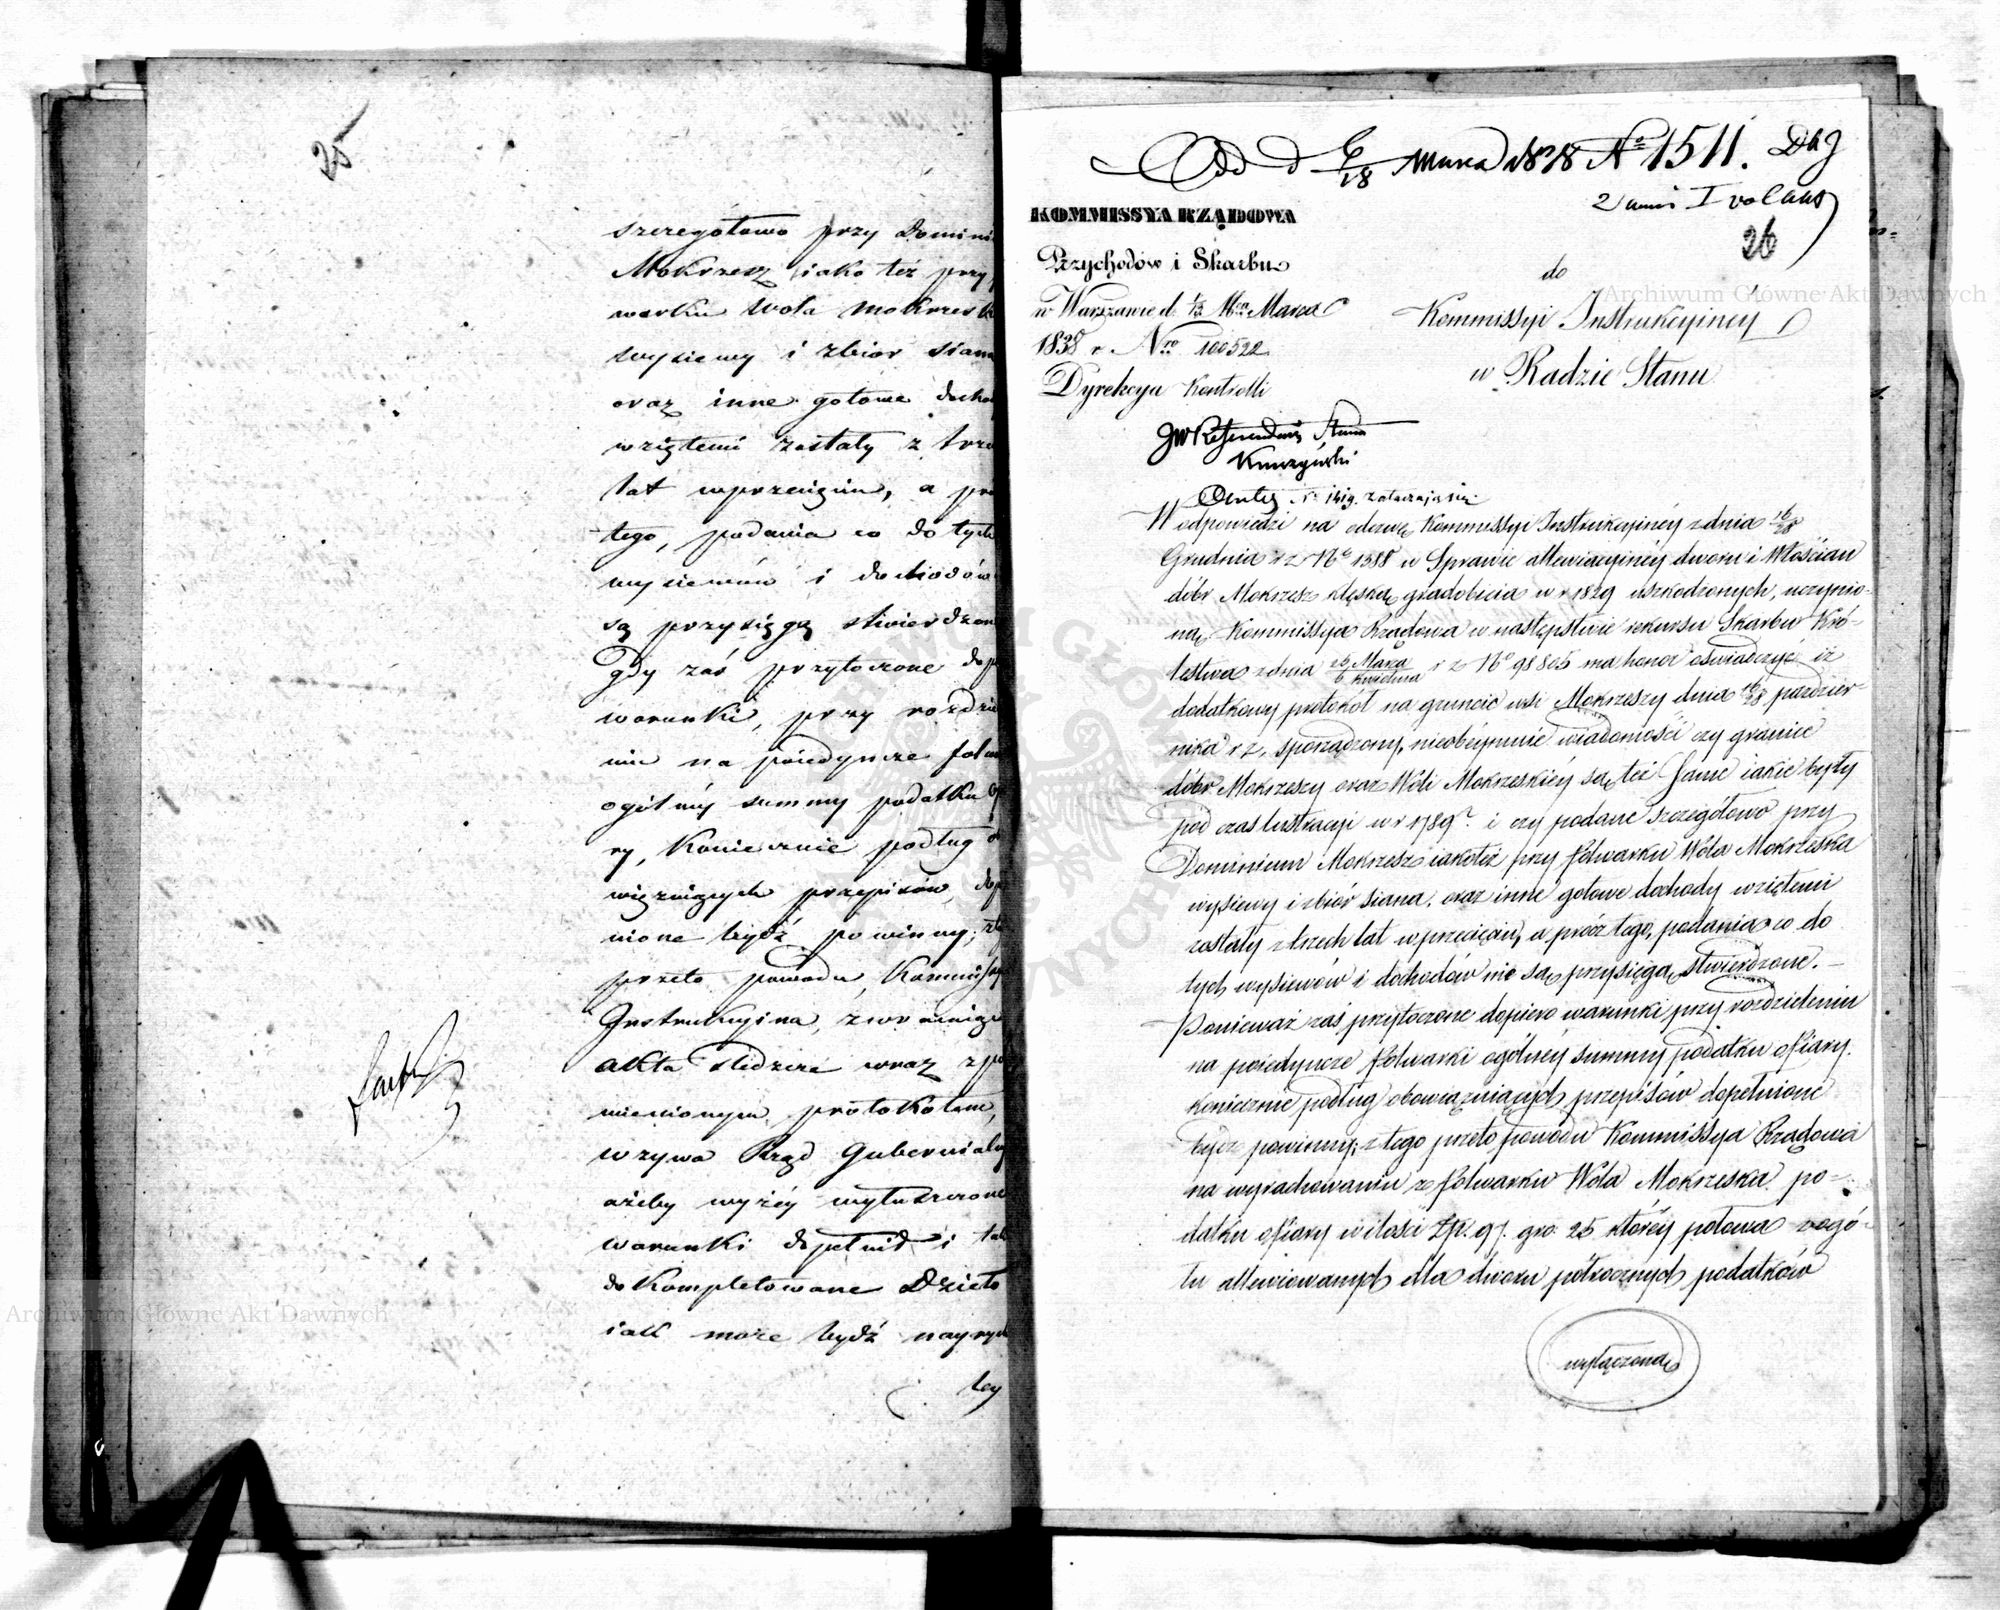 25
szczegółowo przy Domini
Mokrzesz iako też przy
warku Wola Mokrzesk
wysiewy i zbiór siana
oraz inne gotowe docho
wziętemi zostały z trze
lat wprzecięciu, a pró
tego, podania co do tych
wysiewów i dochodów
są przysięgą stwierdzon
Gdy zaś przytoczone dop
warunki, przy rozdzie
niu na poiedyncze folw
ogólnéy summy podatku of
ry, koniecznie podług o
wiązuiących przepisów, dop
nione bydź powinny; z te
przeto powodu, Kommissya
Instrukcyina, zwracaiąc
akta śledcze wraz z po
mienionym protokołem,
wzywa Rząd Gubernialny
ażeby wyżéy wytuszczone
warunki dopełnił i tak
dokompletowane Dzieło
iak może bydź nayrych
ley
Od d 6/18 Marca 1838 No 1511.
26
KOMMISSYA RZĄDOWA
Przychodów i Skarbu
w Warszawie d. 1/13 Mca Marca
1838 r. Nro 100522
Dyrekcya Kontrolli
do
Kommissyi Instrukcyinéy
w Radzie Stanu
JW Referendarz Stanu
W odpowiedzi na odezwę Kommissyi Instrukcyinéy z dnia 16/28
Grudnia r z. No 1388 w Sprawie allewiacyinéy dworu i Włościan
dóbr Mokrzesz klęską gradobicia w r 1829 uszkodzonych, uczynio-
ną, Kommissya Rządowa w następstwie rekursu Skarbu Kró-
lestwa z dnia 25 Marca/6 Kwietnia r z No 98805 ma honor oświadczyć iż
dodatkowy protokół na gruncie wsi Mokrzeszy dnia 16/28 paździer-
nika r z. sporządzony, nieobéymuie wiadomości czy granice
dóbr Mokrzeszy oraz Woli Mokrzeskiéy są też same iakie były
pod czas lustracyi w r 1789. i czy podane szczegółowo przy
Dominium Mokrzesz iakoteż przy folwarku Wola Mokrzeska
wysiewy i zbiór siana, oraz inne gotowe dochody wziętemi
zostały z trzech lat wprzecięciu, a prócz tego, podania co do
tych wysiewów i dochodów nie są przysięgą stwierdzone. -
Ponieważ zaś przytoczone dopiero warunki przy rozdzieleniu
na poiedyncze folwarki ogólnéy summy podatku ofiary.
koniecznie podług obowiązuiących przepisów dopełnione
bydź powinny; z tego przeto powodu Kommissya Rządowa
na wyrachowaniu z folwarku Wola Mokrzeska po-
datku ofiary w ilości Złp. 97. gro. 25 któréy połowa z ogó-
łu allewiowanych dla dworu półrocznych podatków
wyłączona
Archiwum Główne Akt Dawnych
Archiwum Główne Akt Dawnych